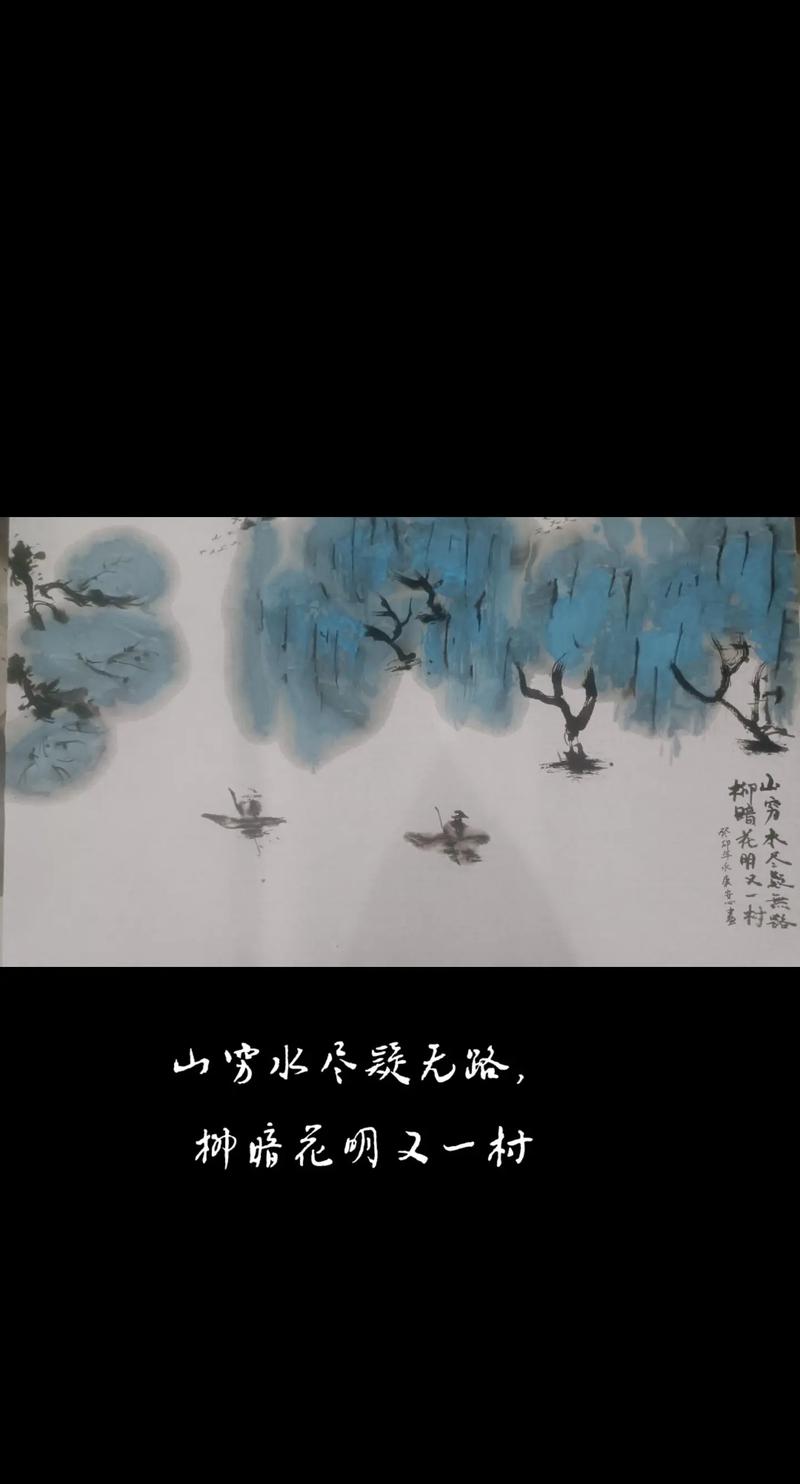 山穷水尽疑無路
柳暗花明又一村
癸卯年
山穷水尽疑无路，
柳暗花明又一村